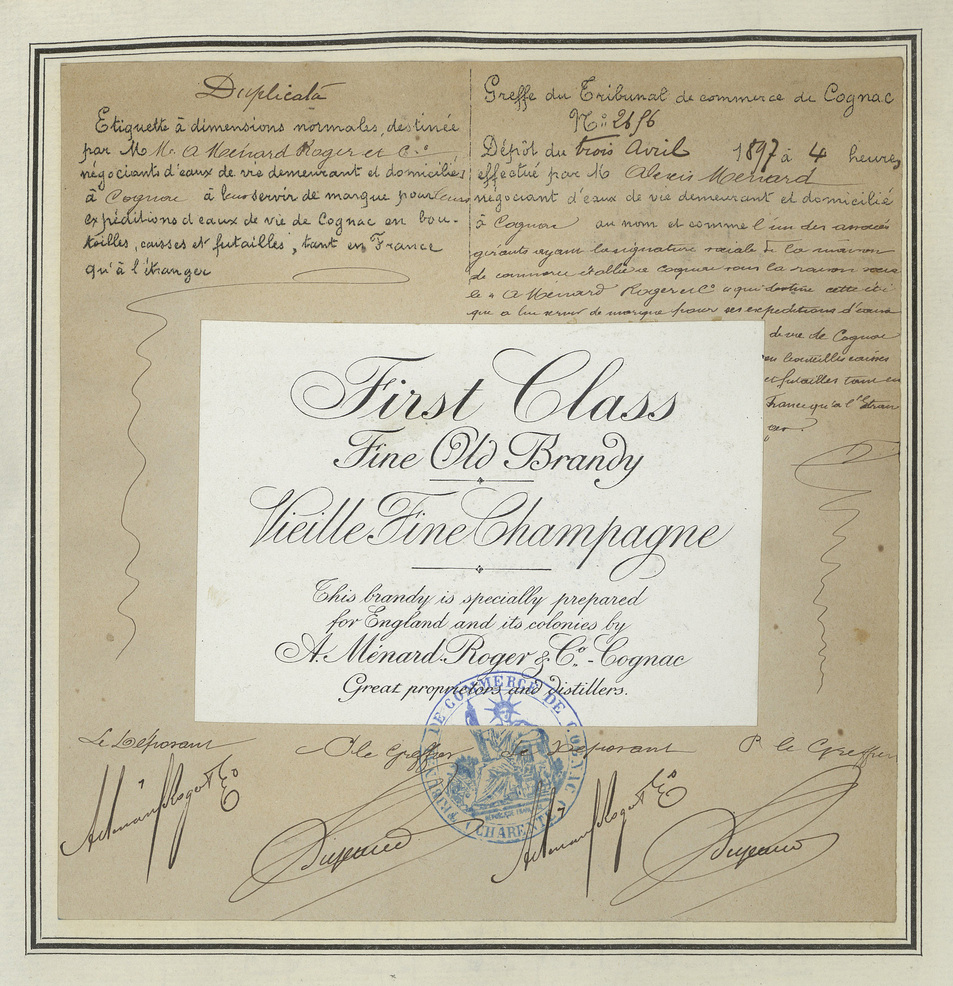 Duplicata
Etiquette à dimensions normales, destinée
par M Mrs A Ménard Roger et Cie
négociants d'eaux de vie demeurant et domiciliés
à Cognac à leur servir de marque pour leurs
expéditions d'eaux de vie de Cognac en bou-
teilles, caisses et futailles, tant en France
qu'à l'étranger
Greffe du Tribunal de commerce de Cognac
No: 2656
Dépôt du trois Avril 1897 à 4 heures
effectué par M Alexis Ménard
négociant d'eaux de vie demeurant et domicilié
à Cognac au nom et comme l'un des associés
gérants ayant la signature sociale de la maison
de commerce établie à Cognac sous la raison socia
le "A Ménard Roger et Co" qui destine cette éti
que à lui servir de marque pour ses expéditions d'eaux
de vie de Cognac
en bouteilles caisses
et futailles tant en
France qu'à l'étran
ger
First Class
Fine Old Brandy
Vieille Fine Champagne
This brandy is specially prepared
for England and its colonies by
A. Ménard-Roger & Co.-Cognac
Great proprietors and distillers.
TRIBUNAL DE COMMERCE DE COGNAC
RÉPUBLIQUE FRANÇAISE
(CHARENTE)
Le Déposant P le Greffier Le Déposant P. le Greffier
A Ménard Roger & Co A Ménard Roger & Co